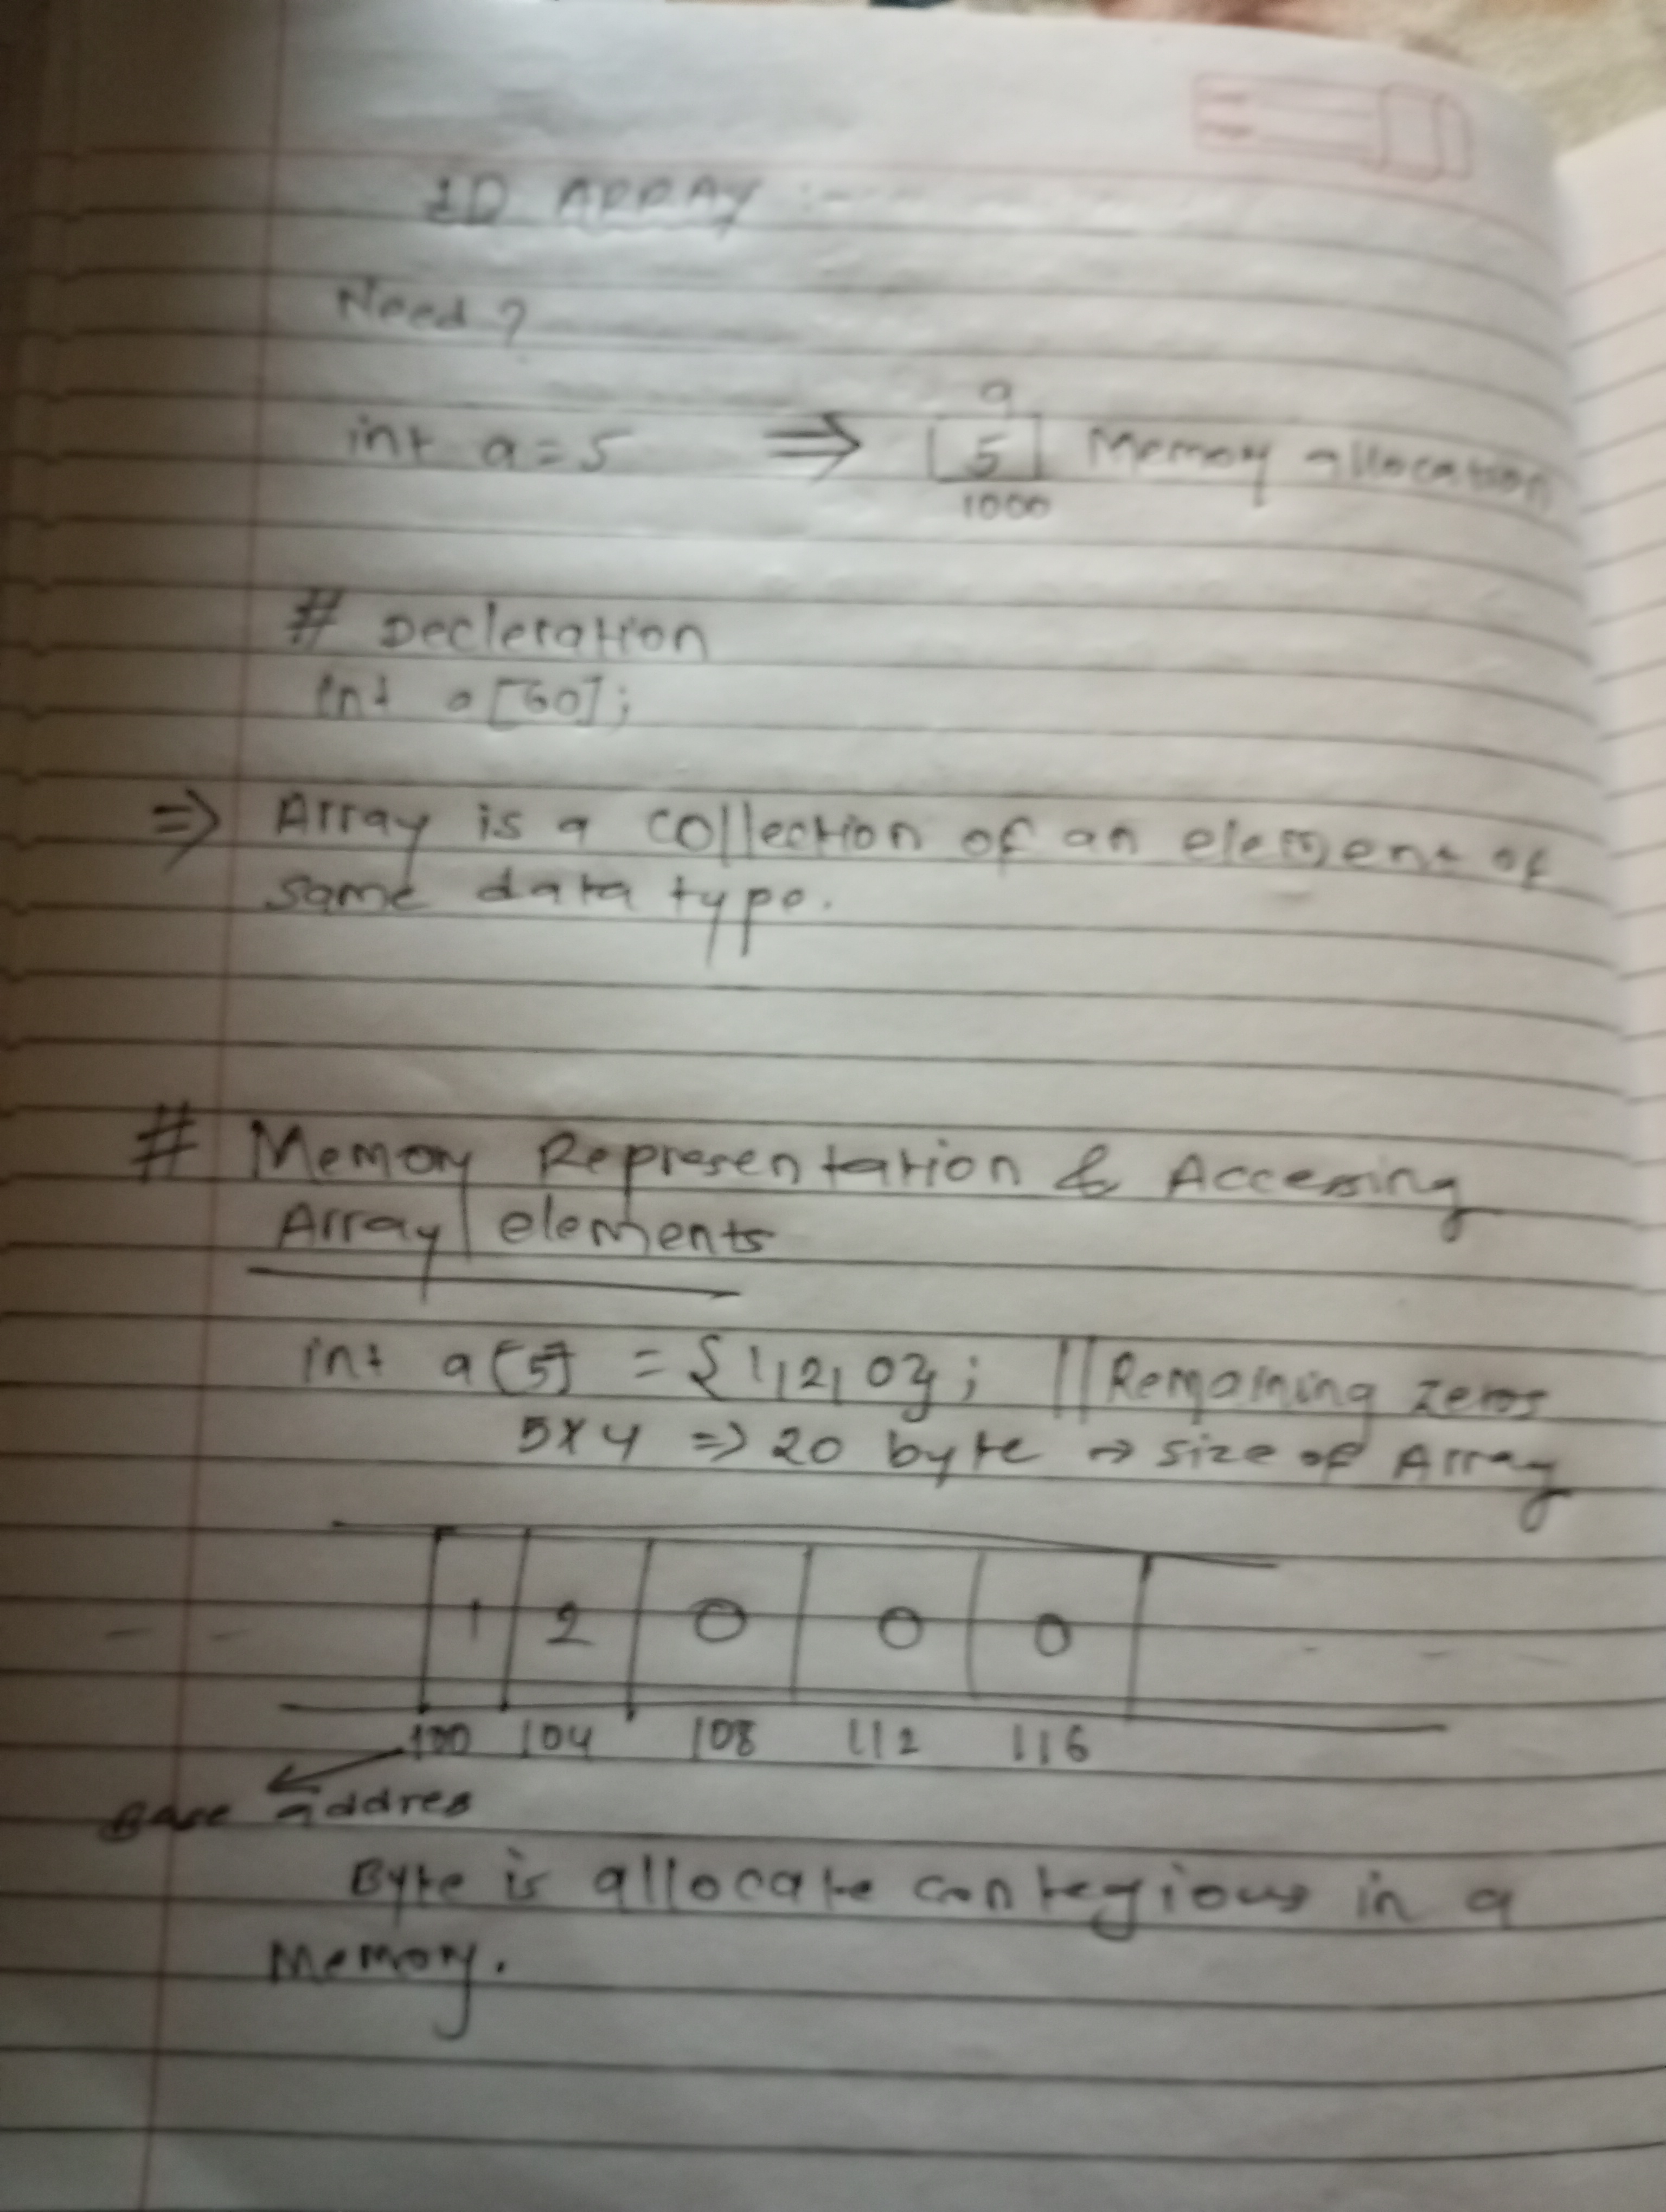 1D ARRAY :-
Need ?
int a = 5 ⇒ 5 Memory allocation
a
1000
# Decleration
int a [60];
⇒ Array is a collection of an element of
same data type.
# Memory Representation & Accessing
Array elements
int a[5] = {1,2,0}; || Remaining zeros
5x4 ⇒ 20 byte → size of Array
1 2 0 0 0
100 104 108 112 116
Base addres
Byte is allocate contegious in a
Memory.